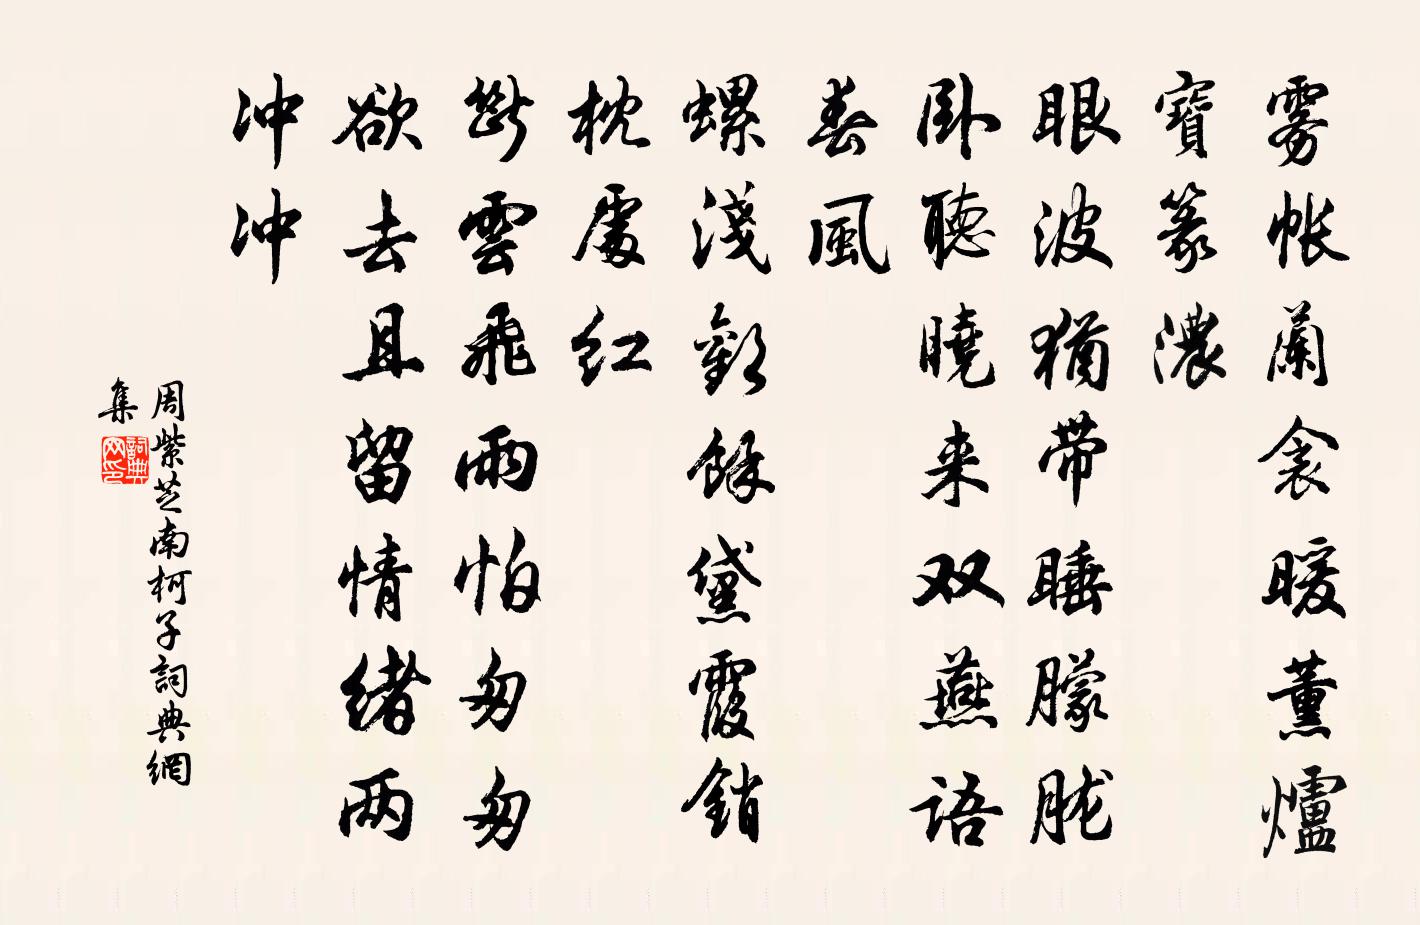 雾帐蘭衾暖薰爐
寶篆濃
眼波猶带睡朦胧
卧聽曉来双燕语
春風
螺淺歡餘黛霞銷
枕處红
斷雲飛雨怕匆匆
欲去且留情緒两
冲冲
周紫芝南柯子詞典網
集
詞典网印